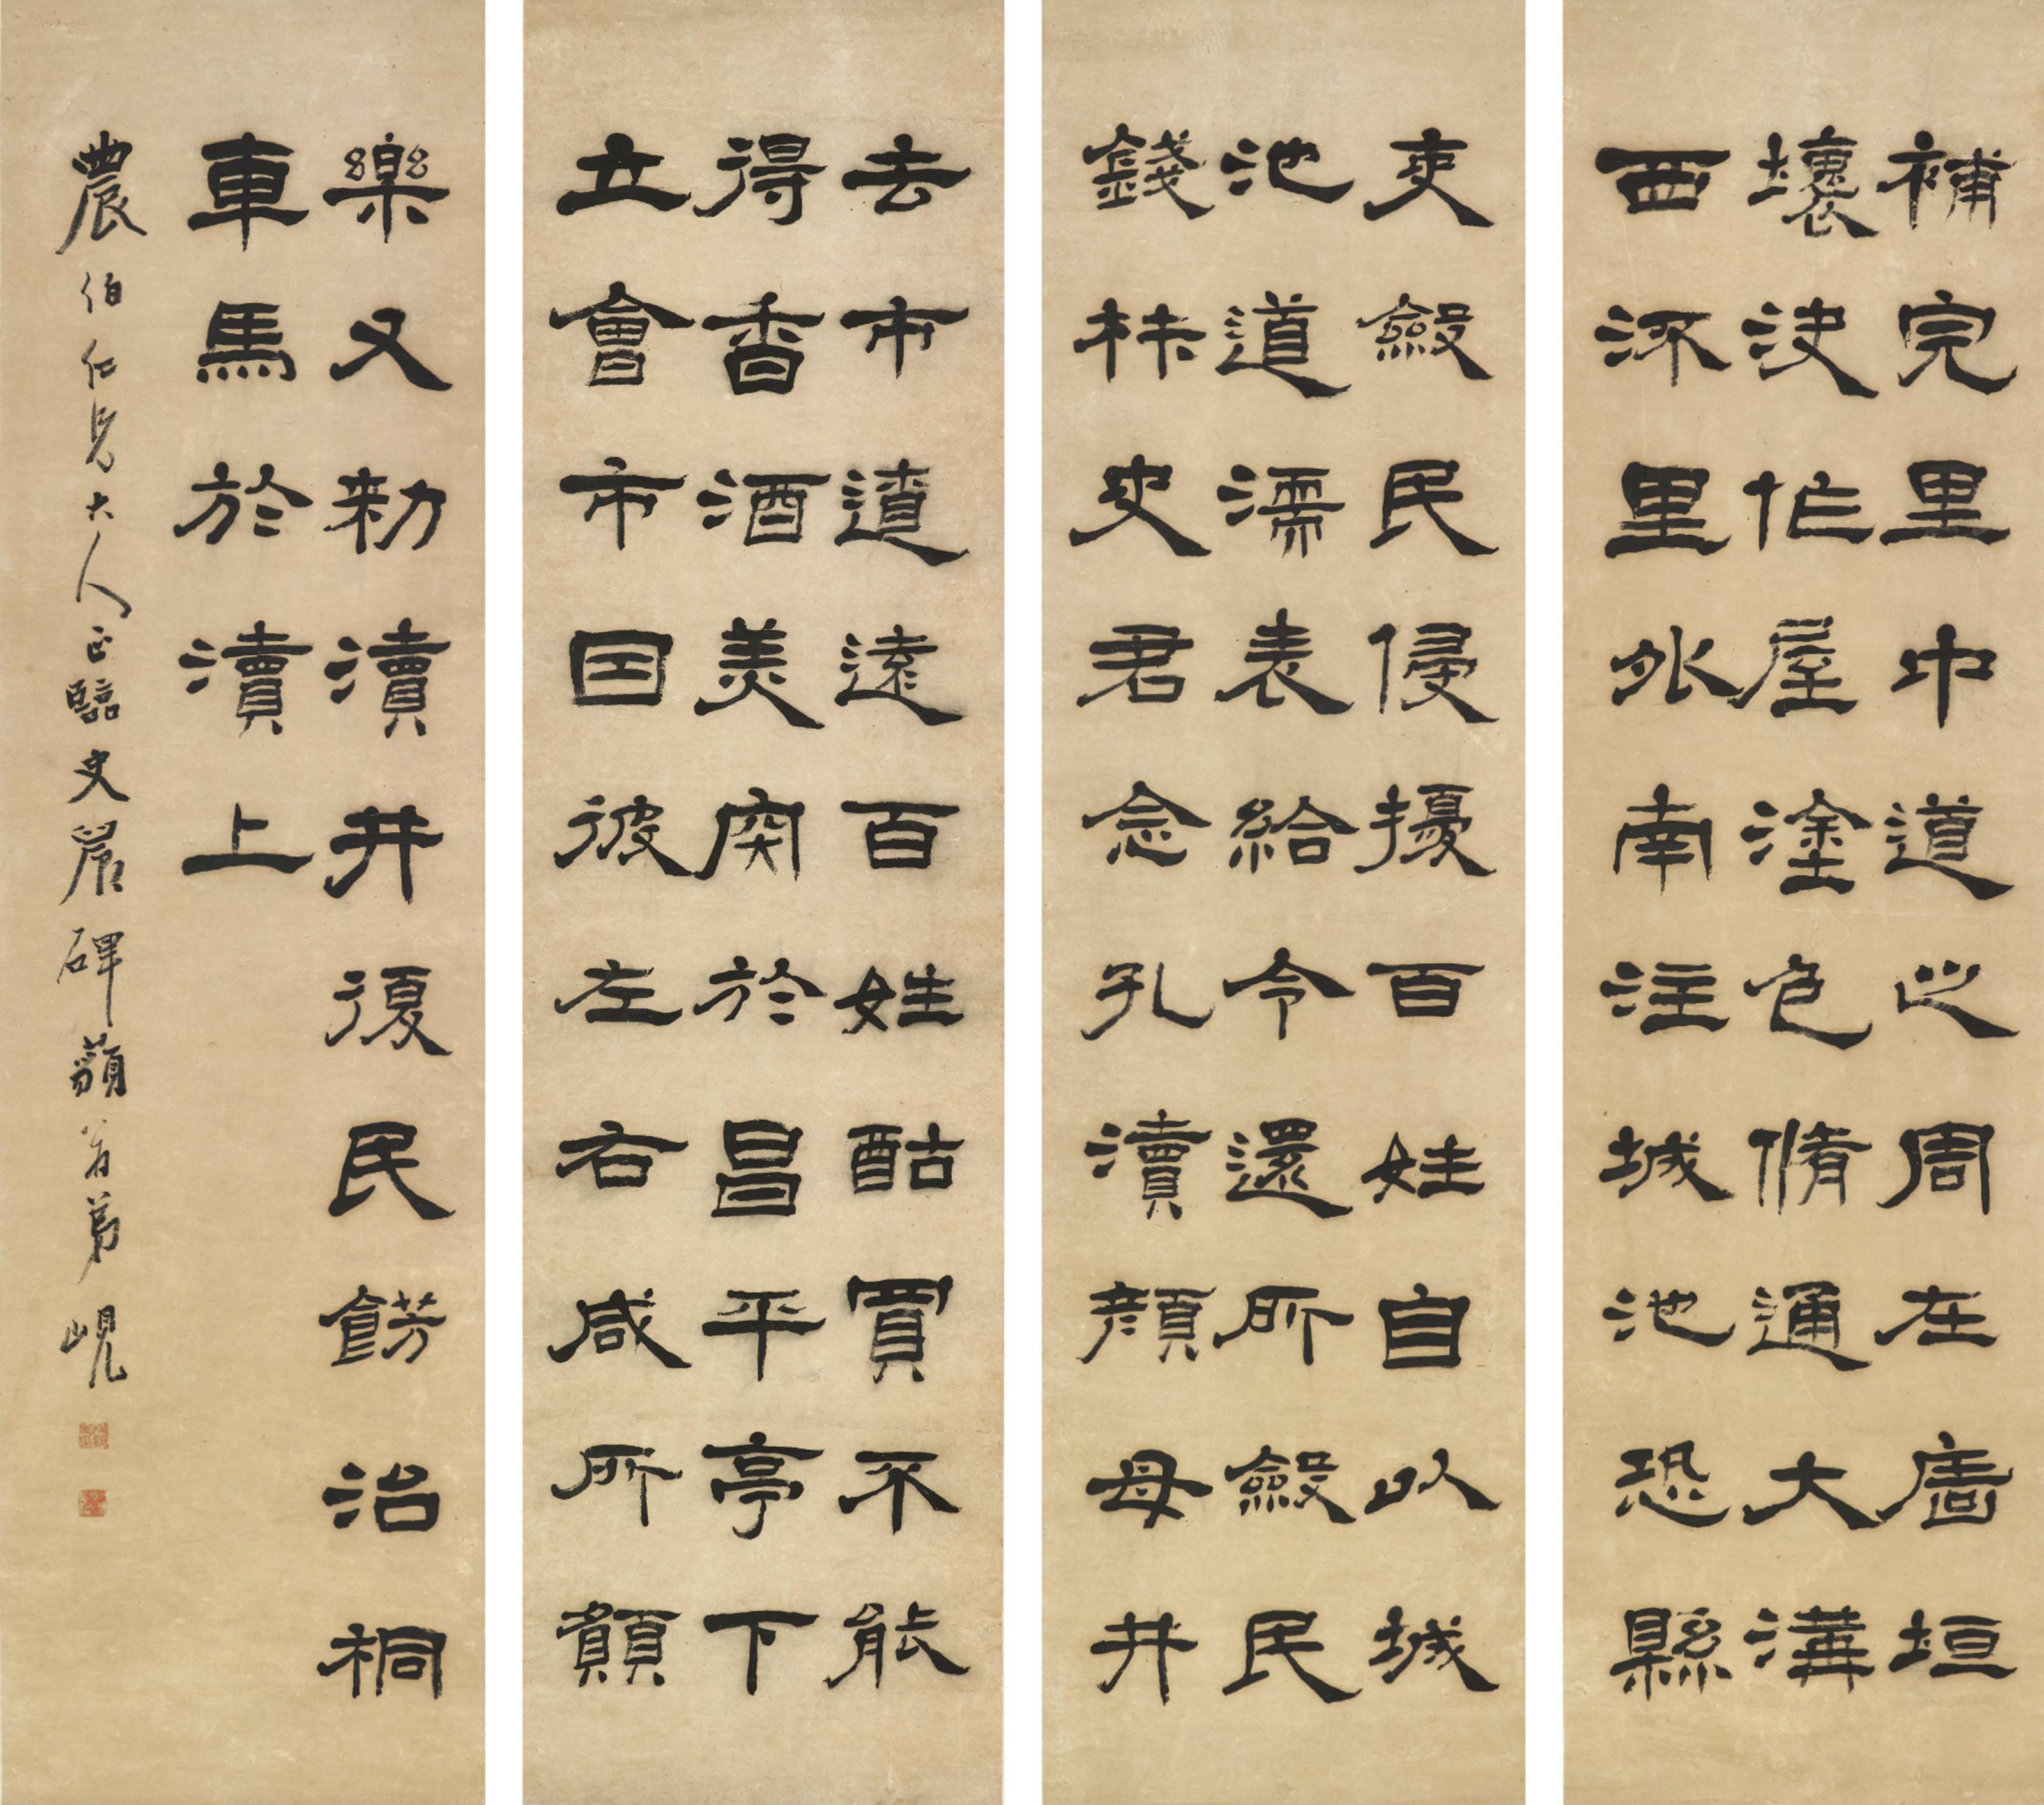 補完里中道之周左廧垣
壞決作屋塗色脩通大溝
西流里外南注城池恐縣
吏斂民侵擾百姓自以城
池道濡麥給令還所斂民
錢材史君念孔瀆顏母井
去市遼遠百姓酤買不能
得香酒美肉於昌平亭下
立會市因彼左右咸所願
樂又勑瀆井復民餝治桐
車馬於瀆上
農伯仁兄大人正臨史晨碑藐翁弟峴